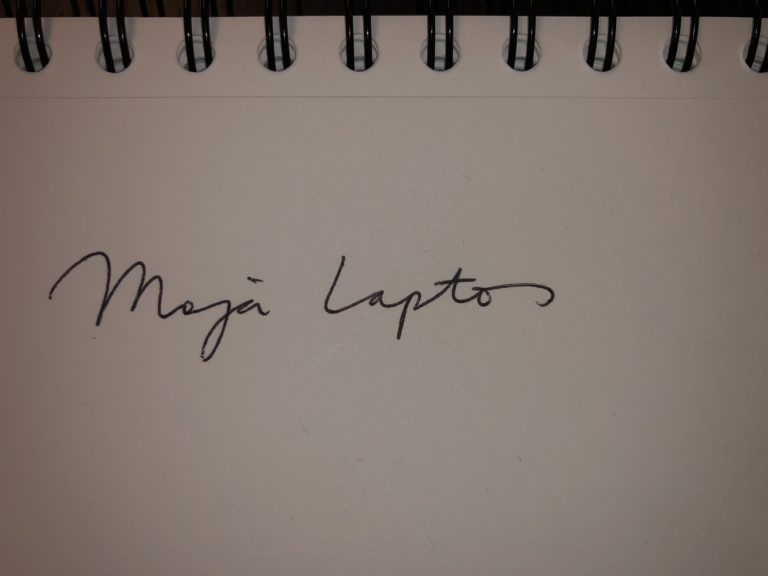 Moja Laptos